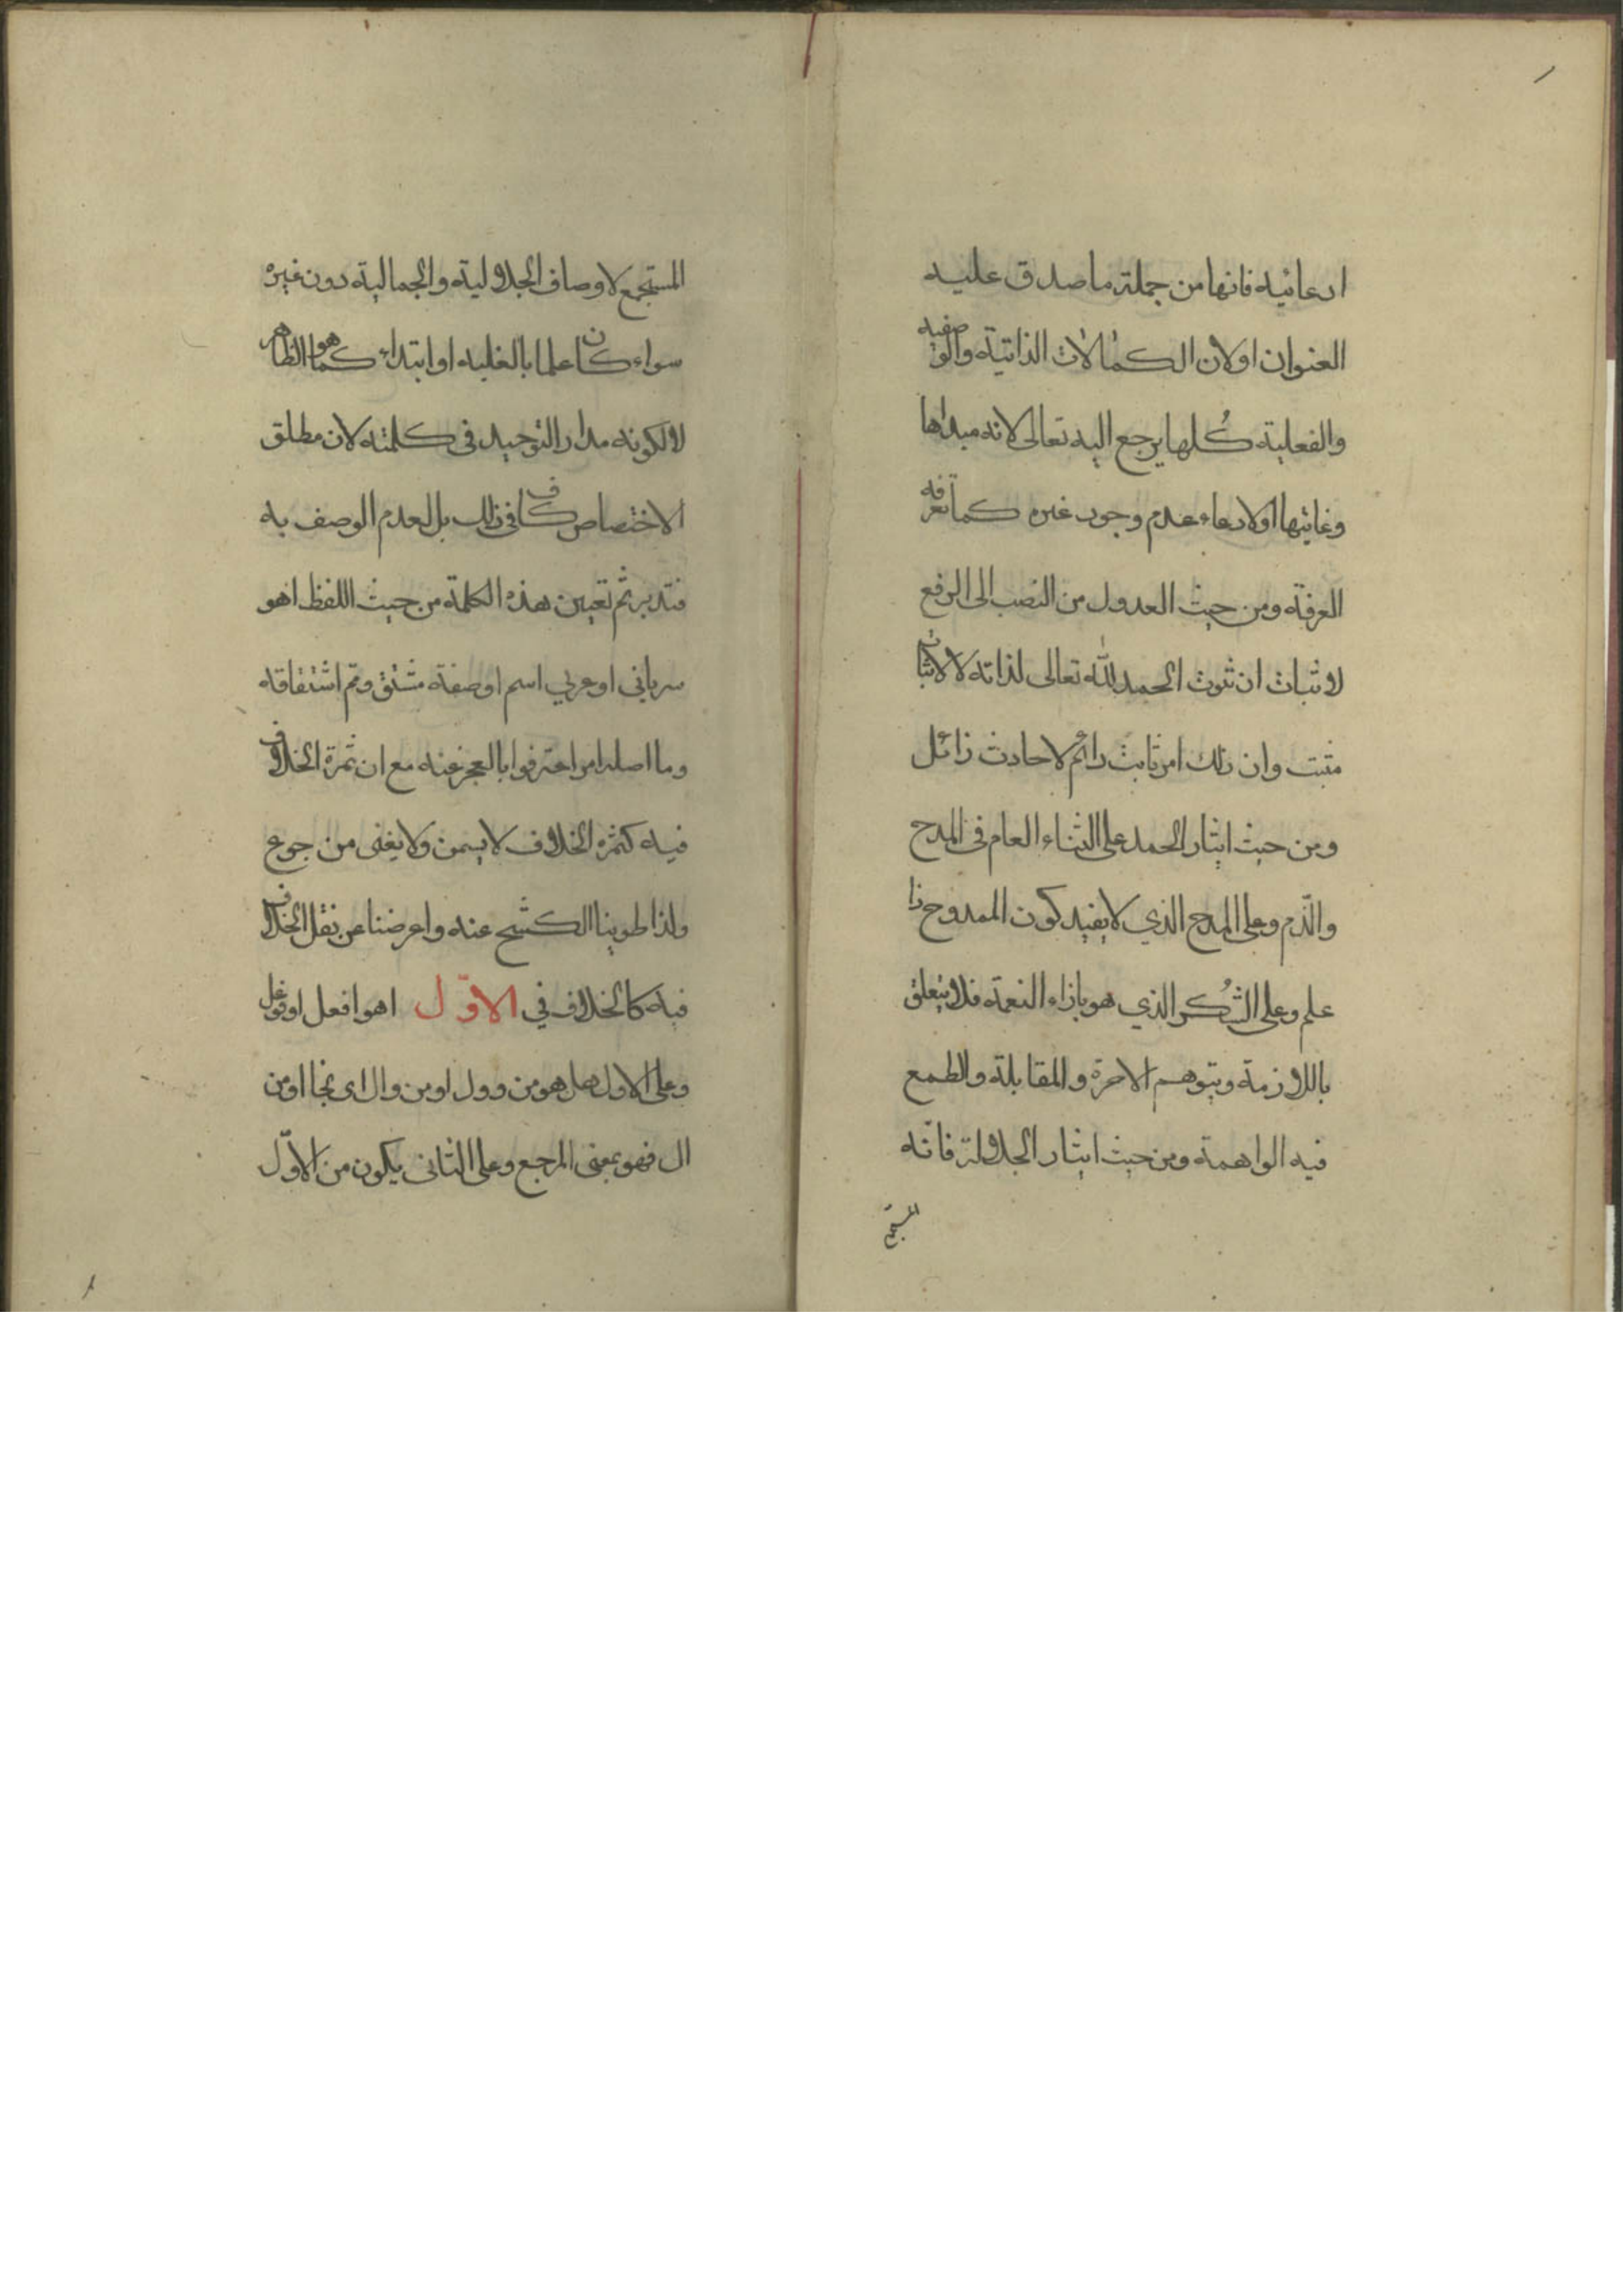 ادعائيه فانها من جملة ما صدق عليه
العنوان اولان الكمالات الذاتية والوصفيه
والفعلية كلها يرجع اليه تعالى لانه مبداها
وغايتها اولادعاء عدم وجود غيره كما تعرفه
العرفة ومن حيث العدول من النصب الى الرفع
لاثبات ان ثبوت الحمد لله تعالى لذاته لا لاثبات
مثبت وان ذلك امر ثابت دائم لا حادث زائل
ومن حيث ايثار الحمد على الثناء العام فى المدح
والذم وعلى المدح الذي لا يفيد كون الممدوح ذا
علم وعلى الشكر الذي هو بازاء النعمة فلا يتعلق
باللازمة ويتوهم الاجرة والمقابلة والطمع
فيه الواهمة ومن حيث ايثار الجلالة فانه
المستجمع
المستجمع لاوصاف الجلالية والجمالية دون غيره
سواء كان علما بالغلبه او ابتداء كما هو الظاهر
لا لكونه مدار التوحيد فى كلمته لان مطلق
الاختصاص كاف فى ذلك بل لعدم الوصف به
فتدبر ثم تعيين هذه الكلمة من حيث اللفظ اهو
سرياني او عربي اسم او صفة مشتق ومم اشتقاقه
وما اصله امر اعترفوا بالعجز عنه مع ان ثمرة الخلاف
فيه كثمره الخلاف لا يسمن ولا يغنى من جوع
ولذا طوينا الكشح عنه واعرضنا عن نقل الخلاف
فيه كالخلاف في الاوّل اهو افعل او فوعل
وعلى الاول هل هو من وول او من وال اى نجا او من
ال فهو بمعنى المرجع وعلى الثانى يكون من الاوّل